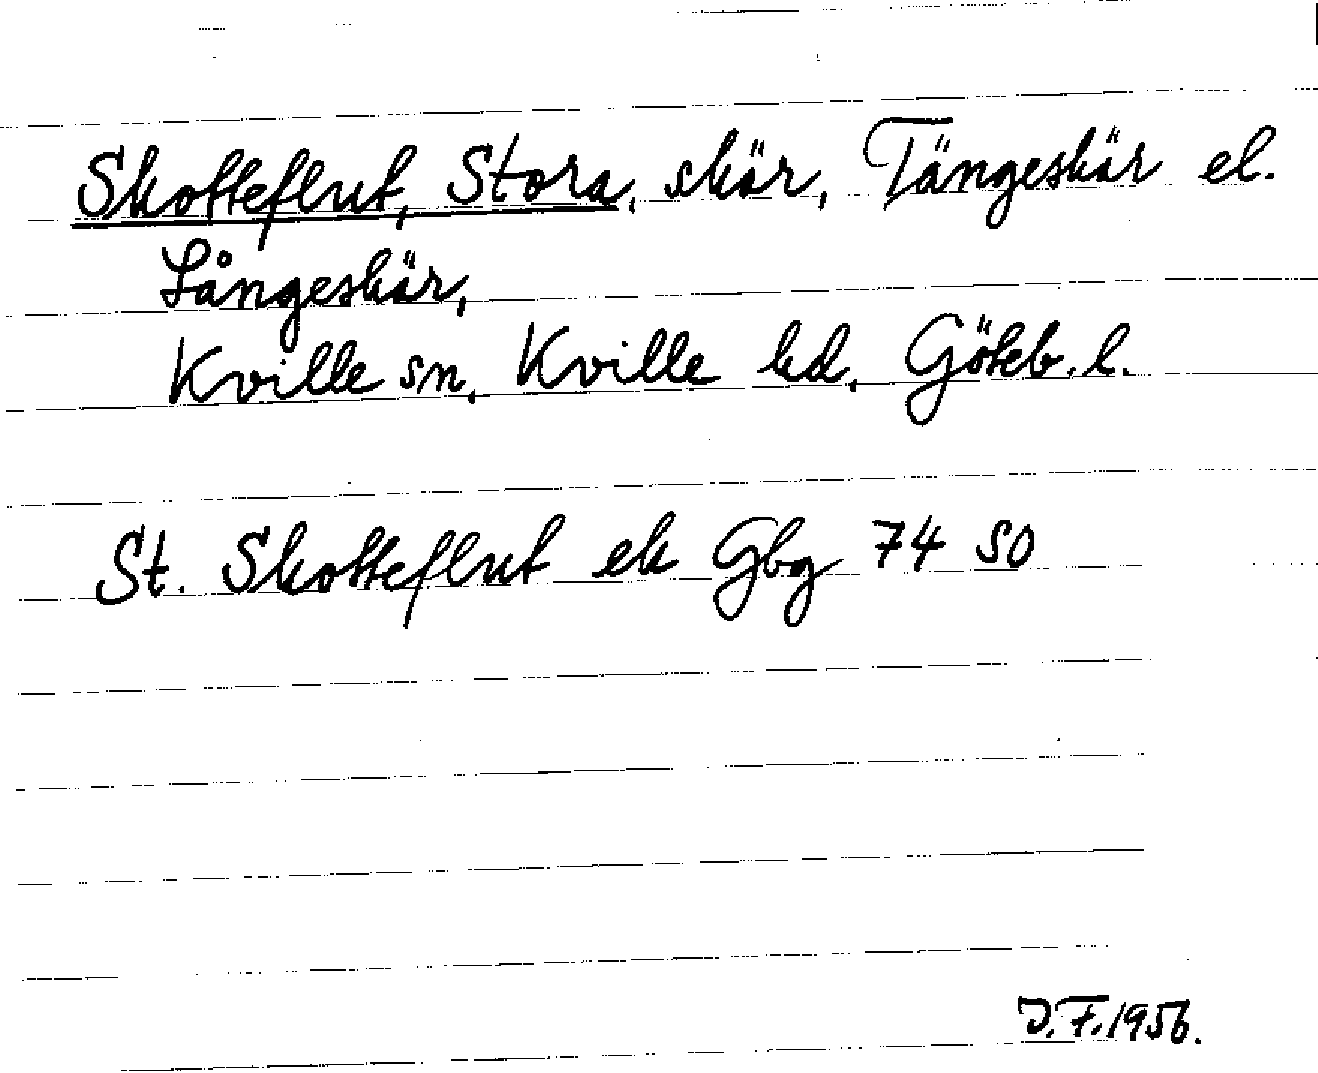 Skotteflut, Stora, skär, Tängeskär el.
Långeskär,
Kville sn, Kville hd, Göteb. l.
St. Skotteflut ek Gbg 74 SO
D.F. 1956.